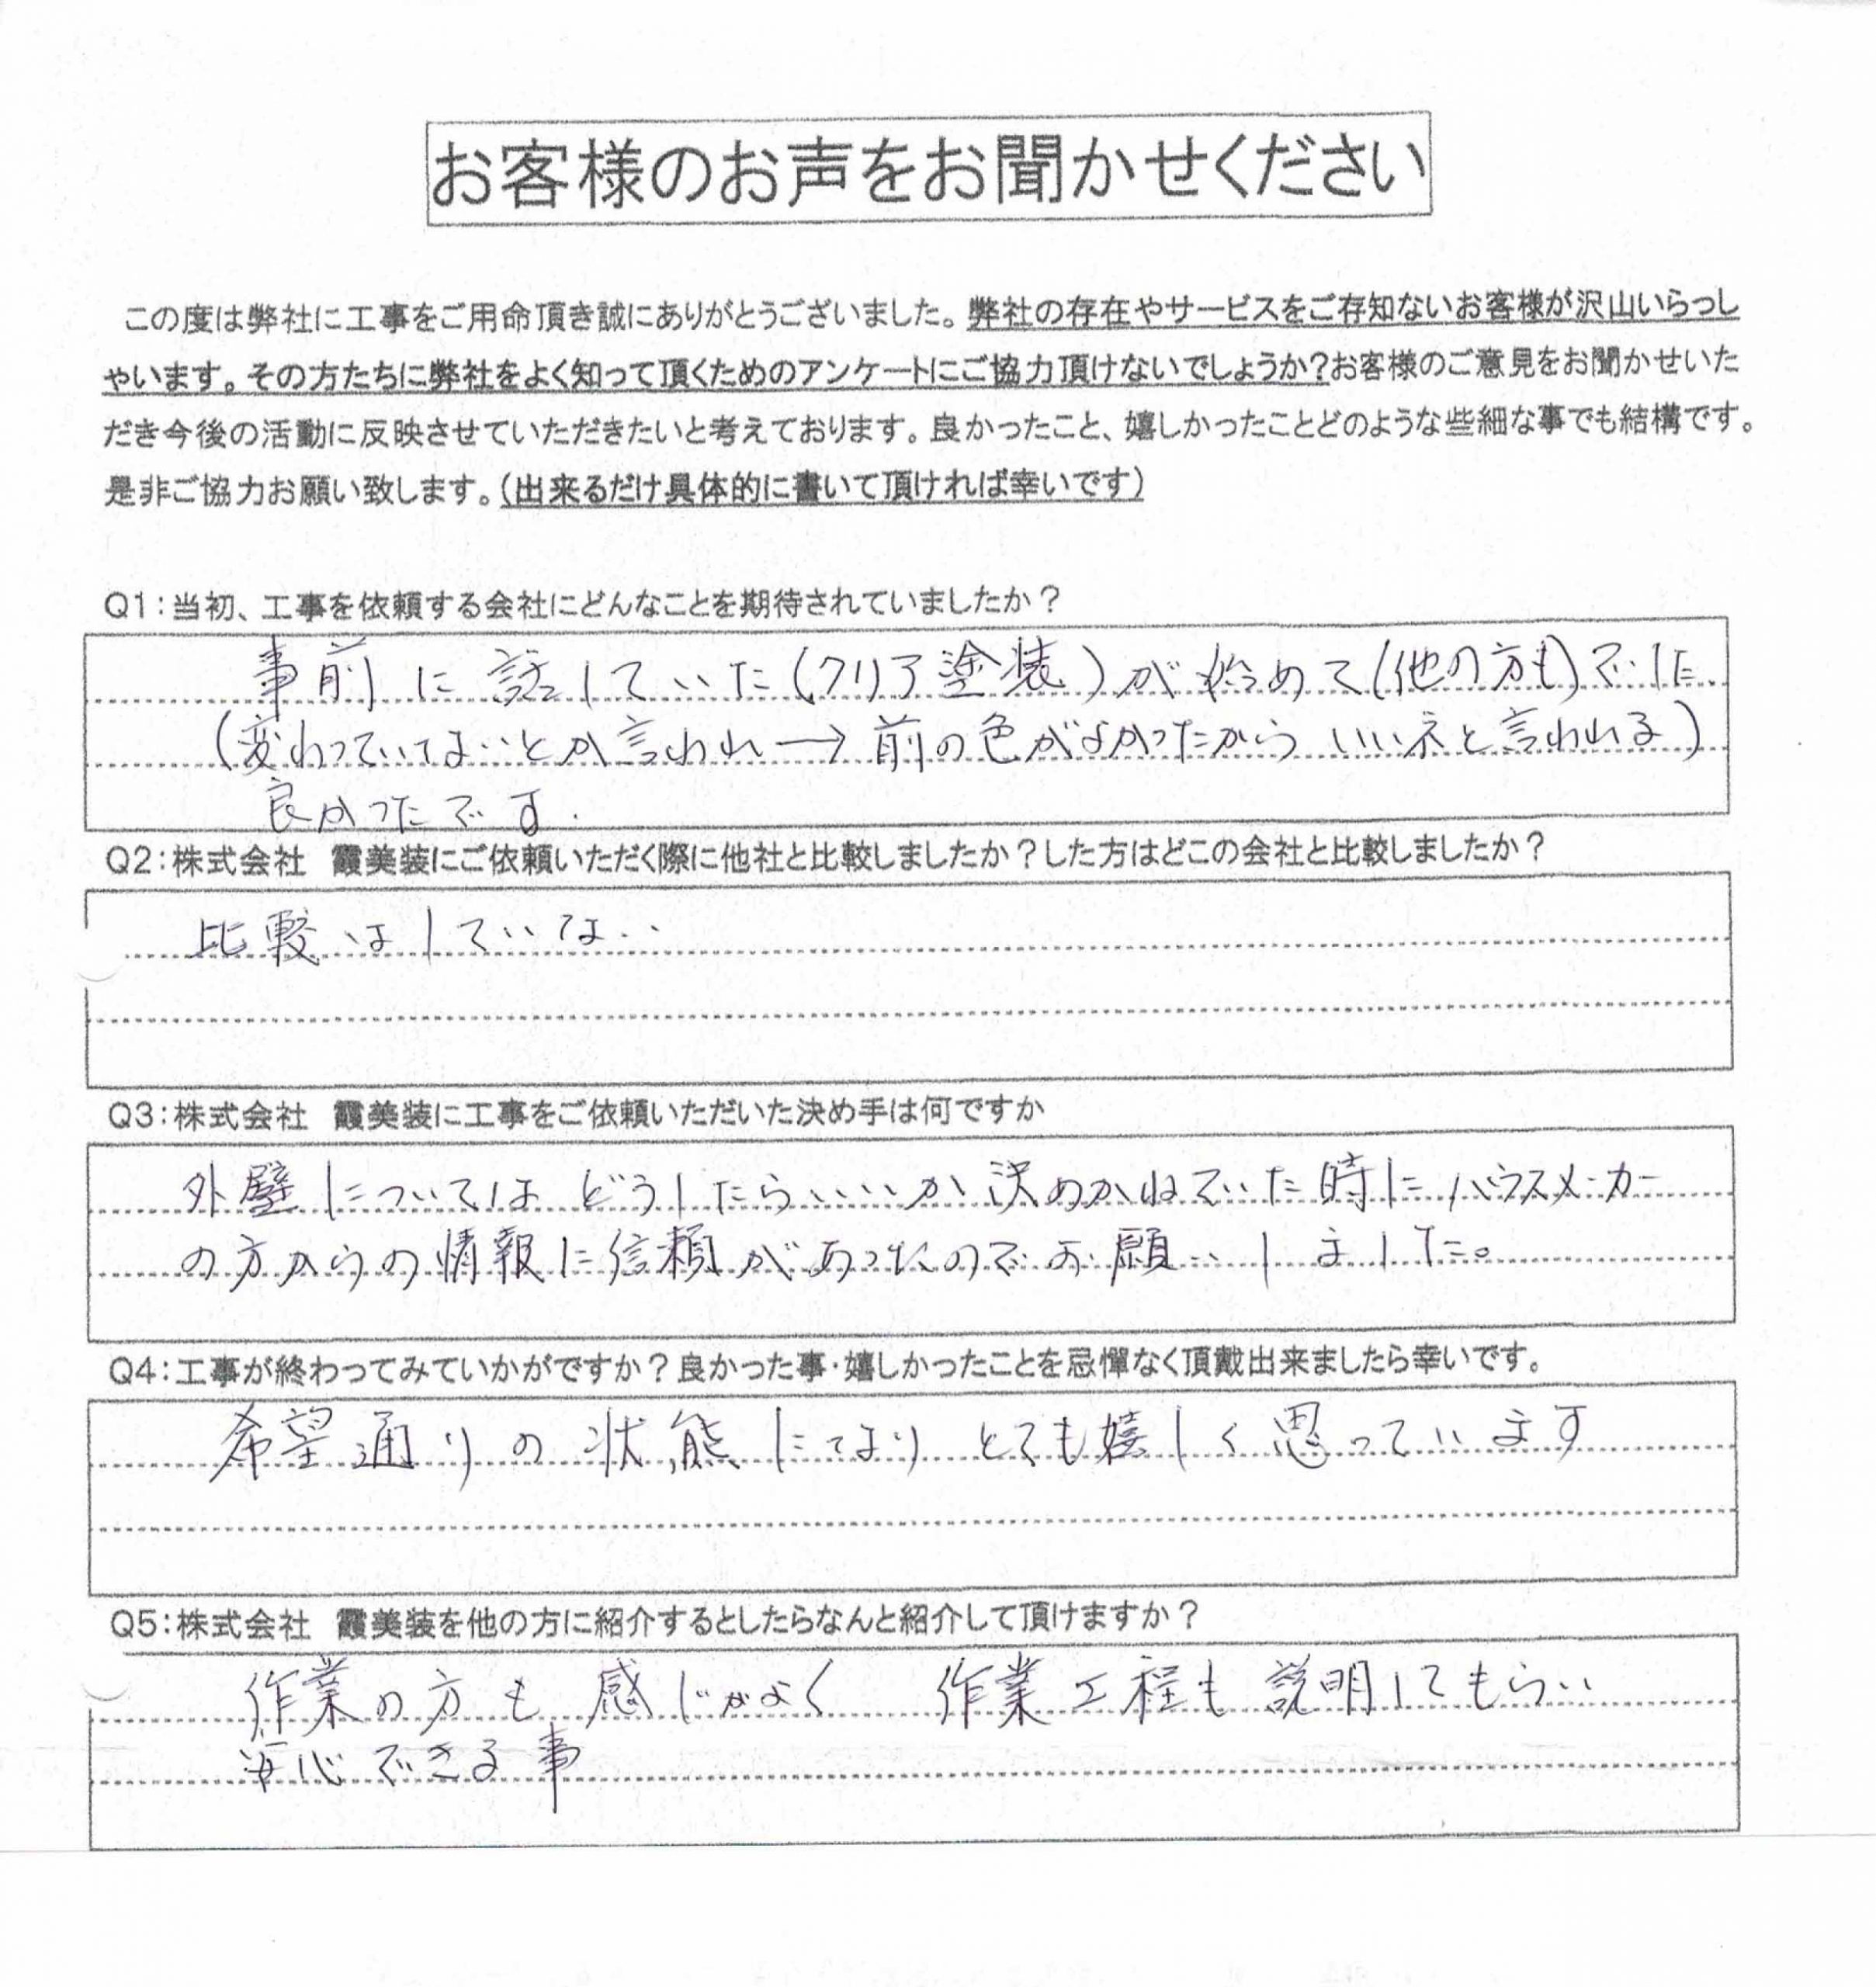 お客様のお声をお聞かせください
この度は弊社に工事をご用命頂き誠にありがとうございました。弊社の存在やサービスをご存知ないお客様が沢山いらっし
ゃいます。その方たちに弊社をよく知って頂くためのアンケートにご協力頂けないでしょうか?お客様のご意見をお聞かせいた
だき今後の活動に反映させていただきたいと考えております。良かったこと、嬉しかったことどのような些細な事でも結構です。
是非ご協力お願い致します。(出来るだけ具体的に書いて頂ければ幸いです)
Q1:当初、工事を依頼する会社にどんなことを期待されていましたか?
事前に話していた(クリア塗装)が始めて(他の方も)でした。
(変わっていないとか言われ→前の色がよかったからいいネと言われる)
良かったです.
Q2:株式会社 霞美装にご依頼いただく際に他社と比較しましたか?した方はどこの会社と比較しましたか?
比較はしていない
Q3:株式会社 霞美装に工事をご依頼いただいた決め手は何ですか
外壁についてはどうしたらいいか決めかねていた時にハウスメーカー
の方からの情報に信頼があったのでお願いしました。
Q4:工事が終わってみていかがですか?良かった事・嬉しかったことを忌憚なく頂戴出来ましたら幸いです。
希望通りの状態になりとても嬉しく思っています
Q5:株式会社 霞美装を他の方に紹介するとしたらなんと紹介して頂けますか?
作業の方も感じがよく 作業工程も説明してもらい
安心できる事